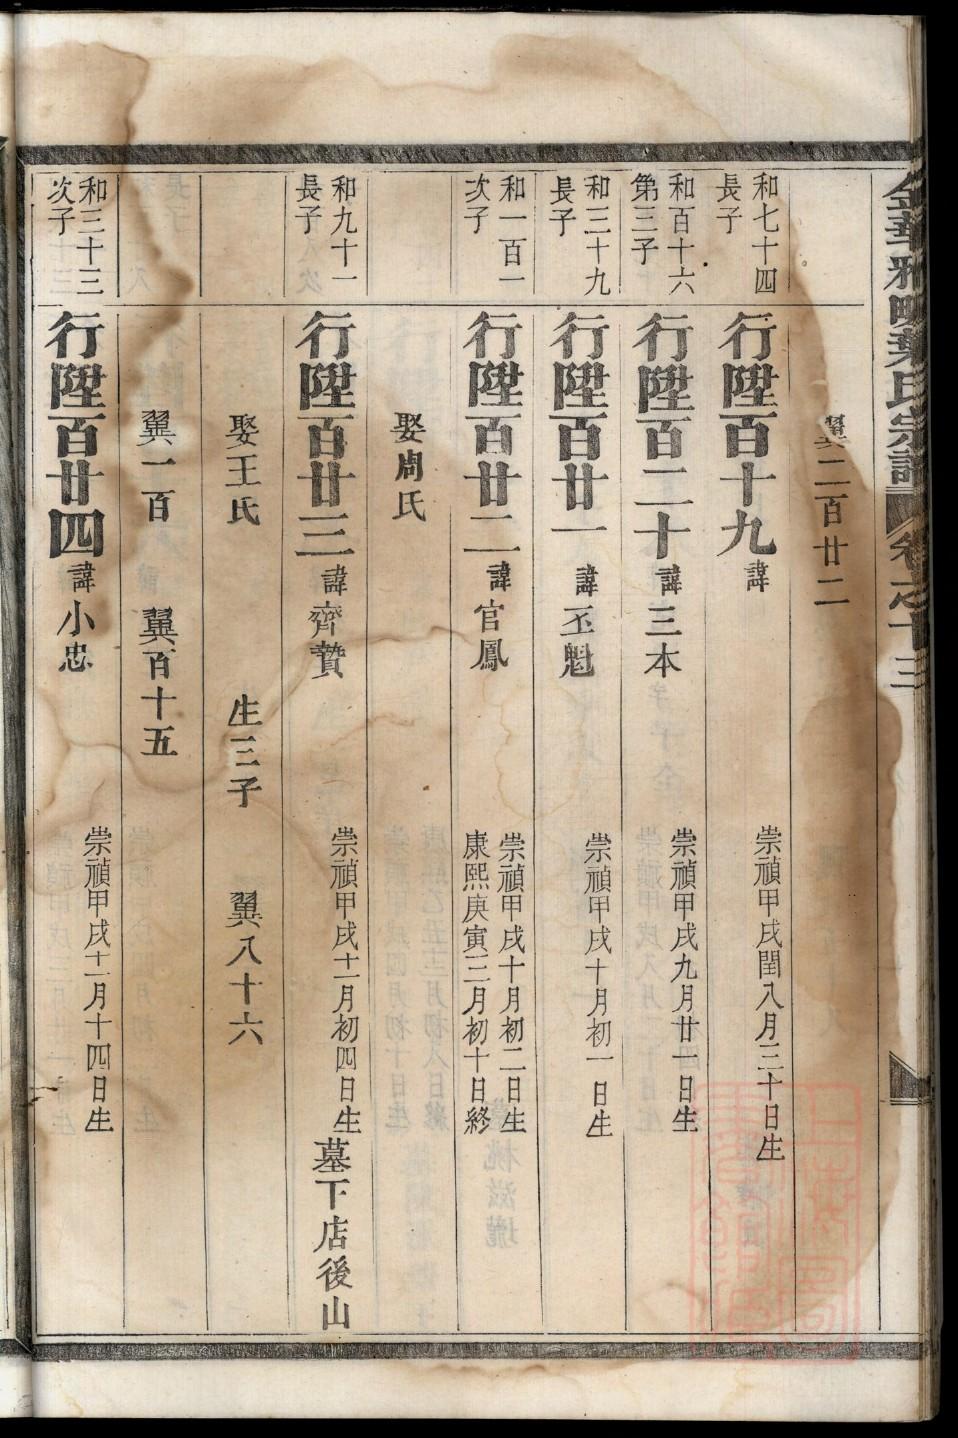 金華雅畈葉氏宗譜 卷之十三
翼二百廿二
和七十四
長子
行陞百十九 諱
崇禎甲戌閏八月三十日生
和百十六
第三子
行陞百二十 諱三本
崇禎甲戌九月廿一日生
和三十九
長子
行陞百廿一 諱丕魁
崇禎甲戌十月初一日生
和一百一
次子
行陞百廿二 諱官鳳
崇禎甲戌十月初二日生
康熙庚寅三月初十日終
娶周氏
和九十一
長子
行陞百廿三 諱齊贊
崇禎甲戌十一月初四日生
墓下店後山
娶王氏 生三子 翼八十六
翼一百 翼百十五
和三十三
次子
行陞百廿四 諱小忠
崇禎甲戌十二月十四日生